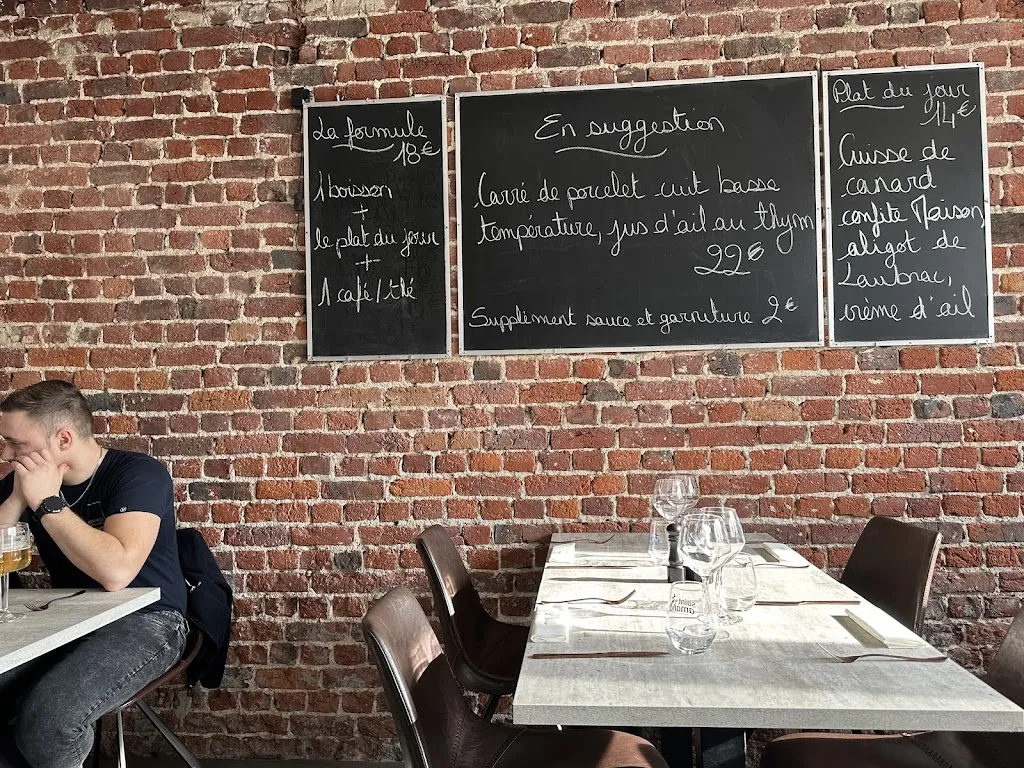 La formule
18€
1 boisson
+
le plat du jour
+
1 café / thé
En suggestion
Carré de porcelet cuit basse
température, jus d'ail au thym
22€
Supplément sauce et garniture 2€
Plat du jour
14€
Cuisse de
canard
confite Maison,
aligot de
Laubrac,
crème d'ail